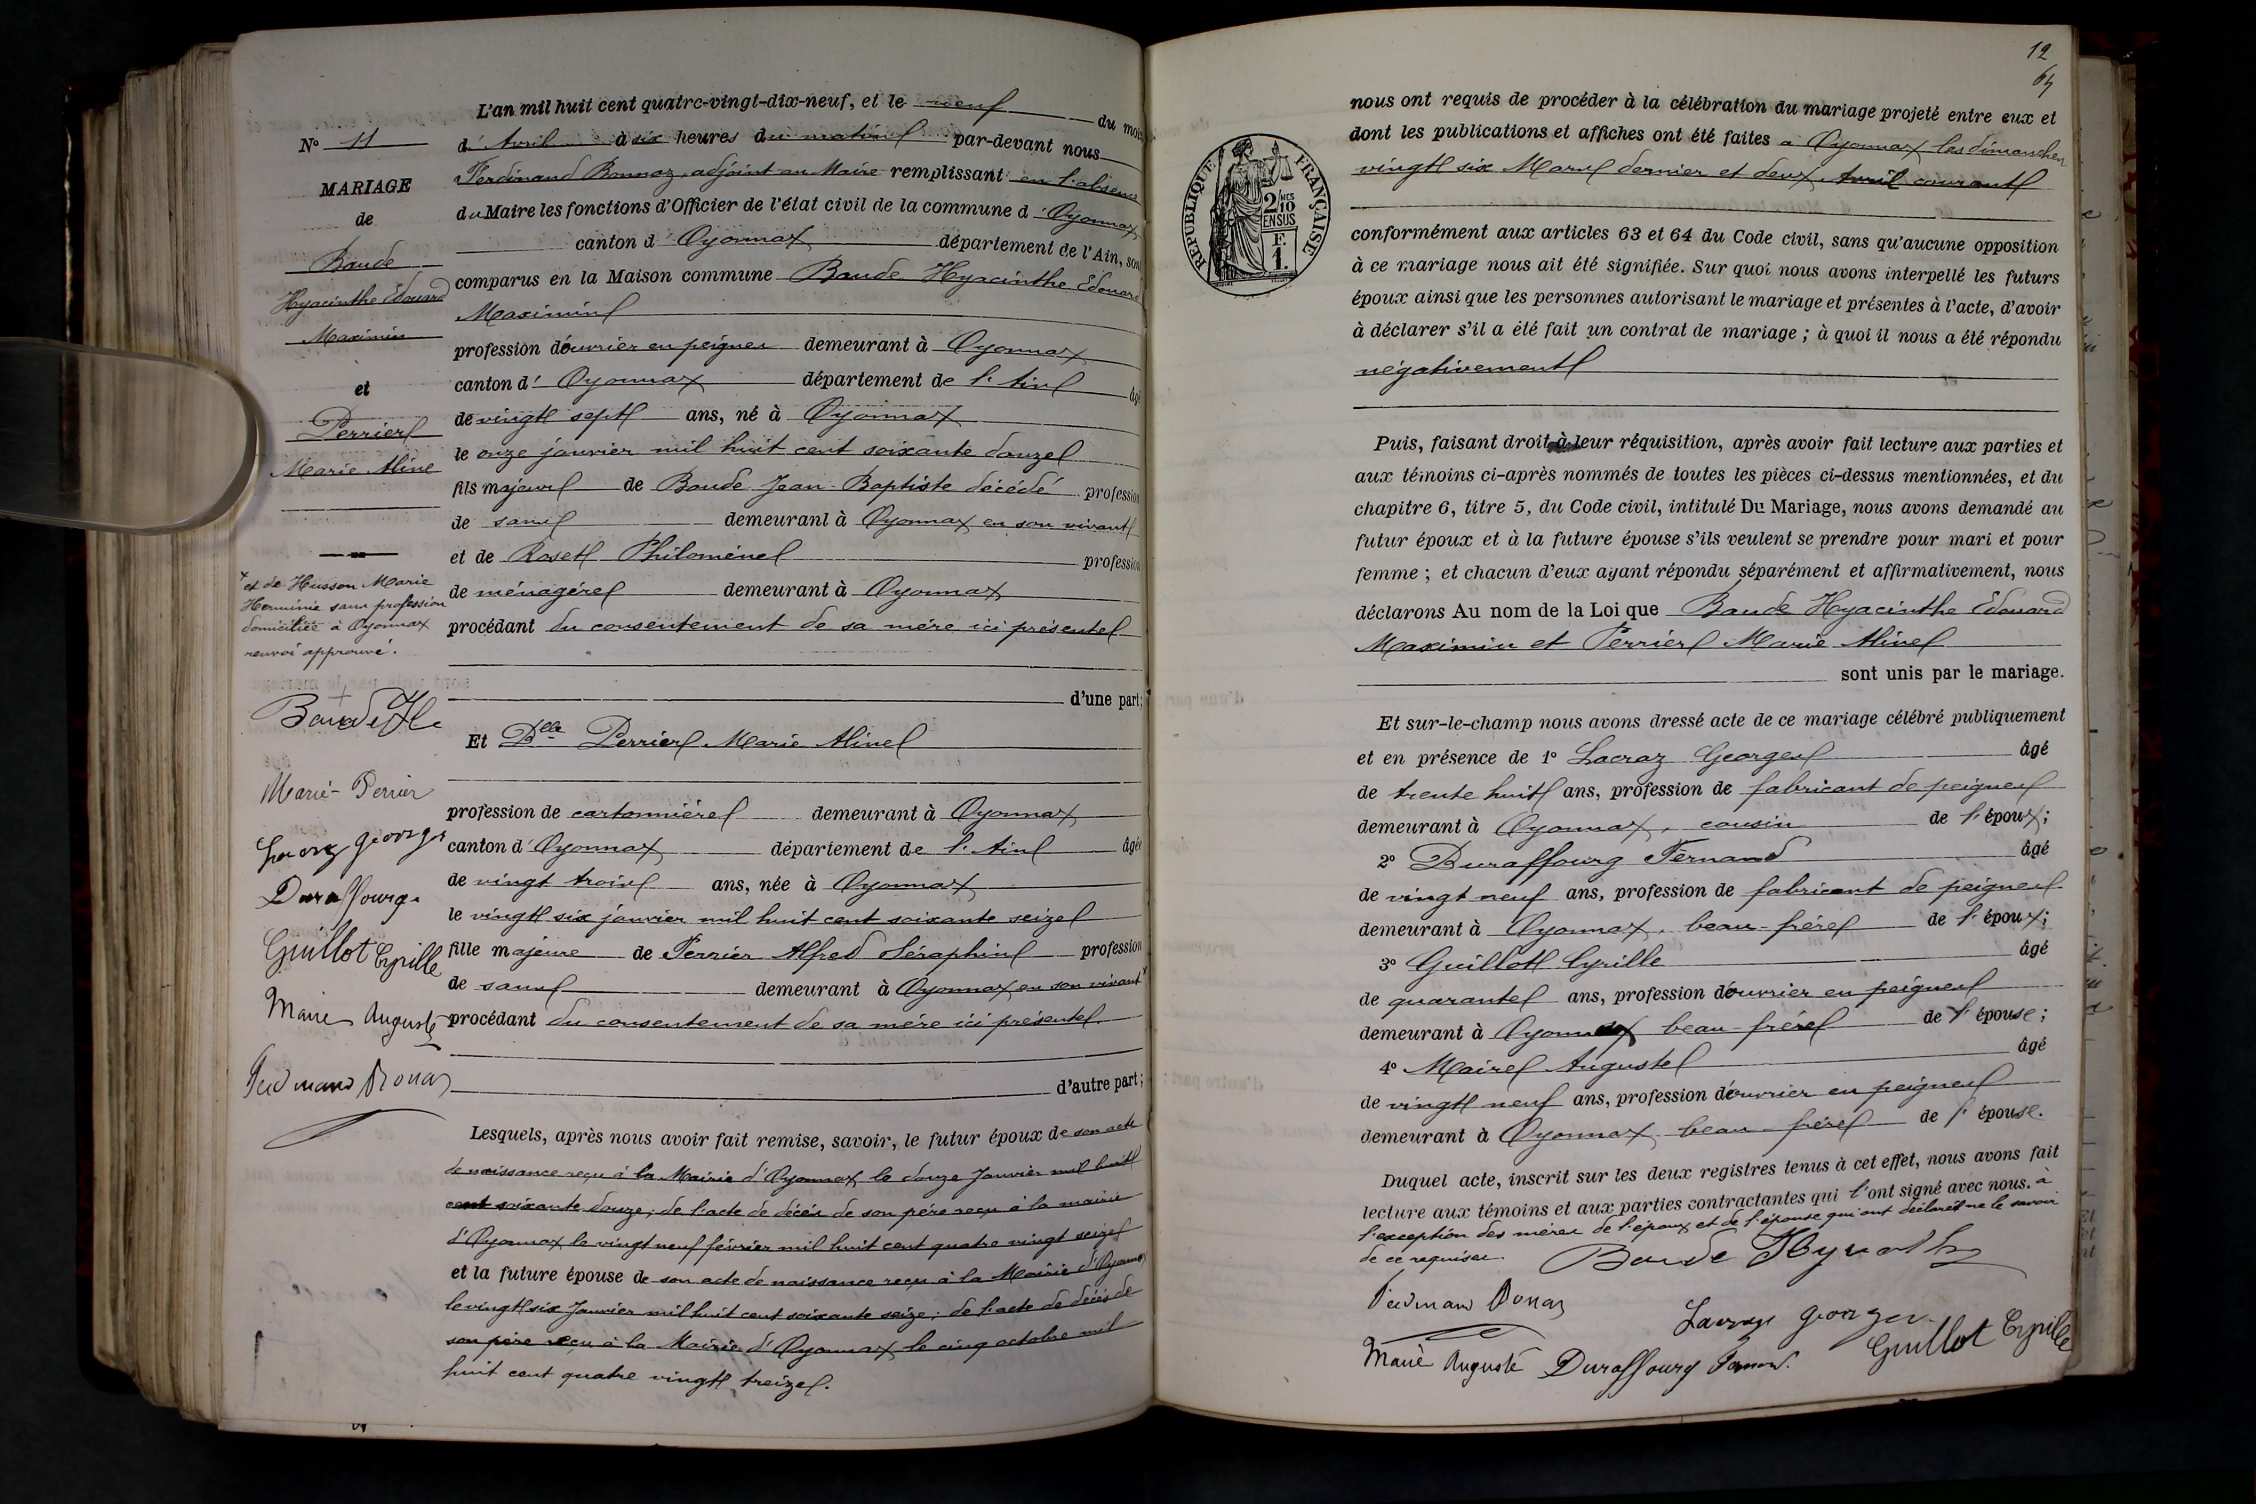 L'an mil huit cent quatre-vingt-dix-neuf, et le neuf du mois
N° 11
d'Avril à six heures du matin par-devant nous
Ferdinand Bonnaz, adjoint au Maire remplissant en l'absence
MARIAGE
du Maire les fonctions d'Officier de l'état civil de la commune d'Oyonnax
de
canton d'Oyonnax département de l'Ain, sont
Baude
comparus en la Maison commune Baude Hyacinthe Edouard
Hyacinthe Edouard
Maximin
Maximin
profession d'ouvrier en peignes demeurant à Oyonnax
et
canton d'Oyonnax département de l'Ain âgé
Perrier
de vingt sept ans, né à Oyonnax
Marie Aline
le onze janvier mil huit cent soixante douze
fils majeur de Baude Jean-Baptiste décédé profession
de sans demeurant à Oyonnax en son vivant
et de Roset Philomène profession
de ménagère demeurant à Oyonnax
procédant du consentement de sa mère ici présente
d'une part;
+ et de Husson Marie
Herminie sans profession
domiciliée à Oyonnax
renvoi approuvé.
Baude H
Et Dlle Perrier Marie Aline
Marie Perrier
profession de cartonnière demeurant à Oyonnax
canton d'Oyonnax département de l'Ain âgée
de vingt trois ans, née à Oyonnax
Duraffourg
le vingt six janvier mil huit cent soixante seize
Guillot Cyrille
fille majeure de Perrier Alfred Séraphin profession
de sans demeurant à Oyonnax en son vivant +
Maire Auguste
procédant du consentement de sa mère ici présente
Ferdinand Bonnaz
d'autre part;
Lesquels, après nous avoir fait remise, savoir, le futur époux de son acte
de naissance reçu à la Mairie d'Oyonnax le douze Janvier mil huit
cent soixante douze; de l'acte de décès de son père reçu à la mairie
d'Oyonnax le vingt neuf février mil huit cent quatre vingt seize
et la future épouse de son acte de naissance reçu à la Mairie d'Oyonnax
le vingt six Janvier mil huit cent soixante seize; de l'acte de décès de
son père reçu à la Mairie d'Oyonnax le cinq octobre mil
huit cent quatre vingt treize.
12
RÉPUBLIQUE FRANÇAISE
2/10
EN SUS
F.
1.
nous ont requis de procéder à la célébration du mariage projeté entre eux et
dont les publications et affiches ont été faites à Oyonnax les dimanches
vingt six Mars dernier et deux Avril courant
conformément aux articles 63 et 64 du Code civil, sans qu'aucune opposition
à ce mariage nous ait été signifiée. Sur quoi nous avons interpellé les futurs
époux ainsi que les personnes autorisant le mariage et présentes à l'acte, d'avoir
à déclarer s'il a été fait un contrat de mariage; à quoi il nous a été répondu
négativement
Puis, faisant droit à leur réquisition, après avoir fait lecture aux parties et
aux témoins ci-après nommés de toutes les pièces ci-dessus mentionnées, et du
chapitre 6, titre 5, du Code civil, intitulé Du Mariage, nous avons demandé au
futur époux et à la future épouse s'ils veulent se prendre pour mari et pour
femme; et chacun d'eux ayant répondu séparément et affirmativement, nous
déclarons Au nom de la Loi que Baude Hyacinthe Edouard
Maximin et Perrier Marie Aline
sont unis par le mariage.
Et sur-le-champ nous avons dressé acte de ce mariage célébré publiquement
et en présence de 1° Lacraz Georges âgé
de trente huit ans, profession de fabricant de peignes
demeurant à Oyonnax, cousin de l'époux;
2° Duraffourg Fernand âgé
de vingt neuf ans, profession de fabricant de peignes
demeurant à Oyonnax, beau-frère de l'époux;
3° Guillot Cyrille âgé
de quarante ans, profession d'ouvrier en peignes
demeurant à Oyonnax beau-frère de l'épouse;
4° Maire Auguste âgé
de vingt neuf ans, profession d'ouvrier en peignes
demeurant à Oyonnax beau-frère de l'épouse.
Duquel acte, inscrit sur les deux registres tenus à cet effet, nous avons fait
lecture aux témoins et aux parties contractantes qui l'ont signé avec nous. à
l'exception des mères de l'époux et de l'épouse qui ont déclaré ne le savoir
de ce requises.
Baude Hyacinthe
Ferdinand Bonnaz
Georges
Guillot Cyrille
Maire Auguste Duraffourg Fernand.